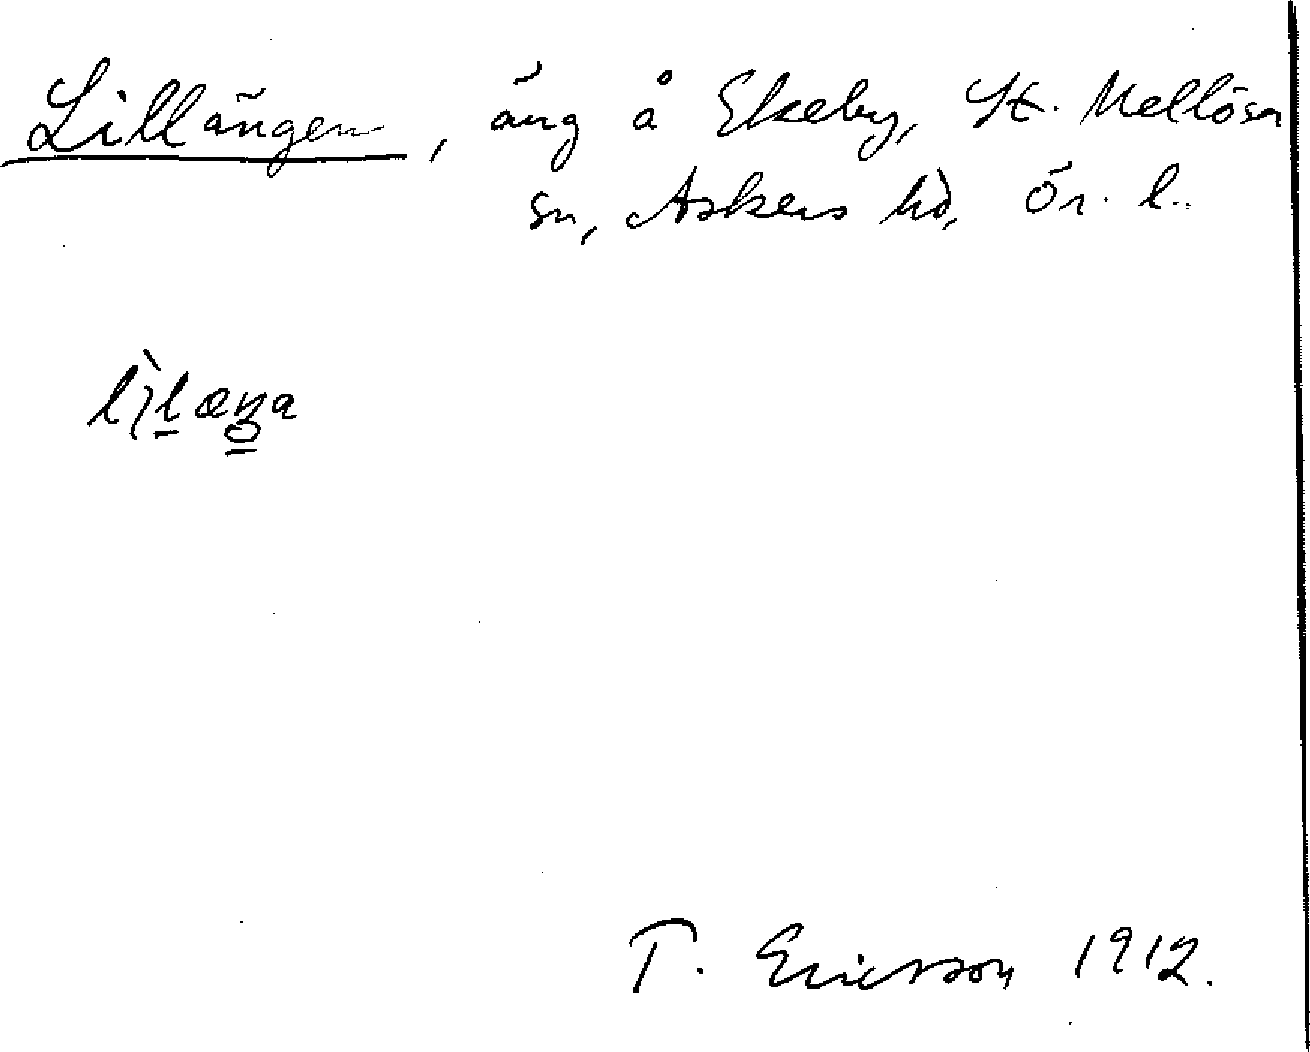 Lillängen, äng å Ekeby, St. Mellösa
sn, Askers hd, Ör. l.
T. Ericsson 1912.